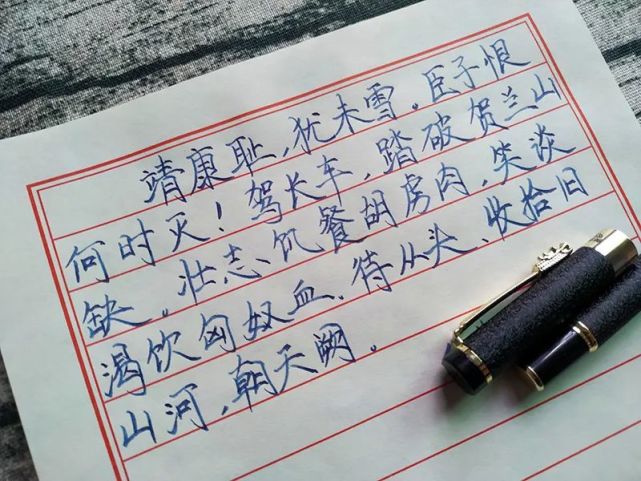 靖康耻,犹未雪。臣子恨
何时灭!驾长车,踏破贺兰山
缺。壮志饥餐胡虏肉,笑谈
渴饮匈奴血。待从头、收拾旧
山河,朝天阙。